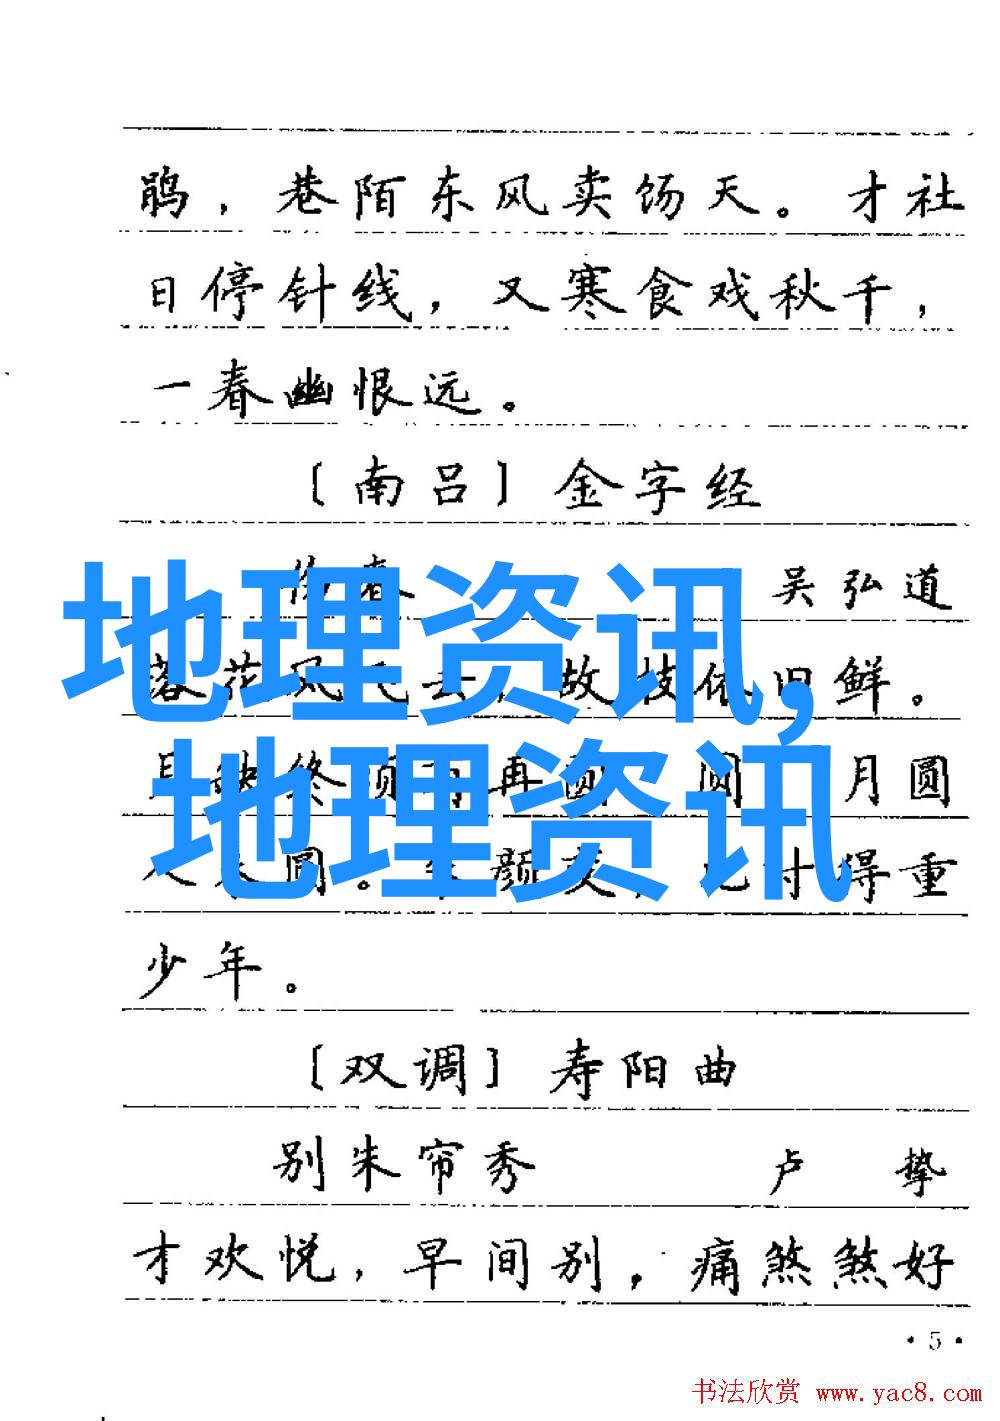 鹃，巷陌东风卖饧天。才社
日停针线，又寒食戏秋千，
一春幽恨远。
〔南吕〕金字经
伤春 吴弘道
落花风飞去，故枝依旧鲜。
月缺终须有再圆 圆 月圆
人未圆。朱颜变，几时得重
少年。
〔双调〕寿阳曲
别朱帘秀 卢挚
才欢悦，早间别，痛煞煞好
·5·
地理资讯,
地理资讯
书法欣赏 www.yac8.com